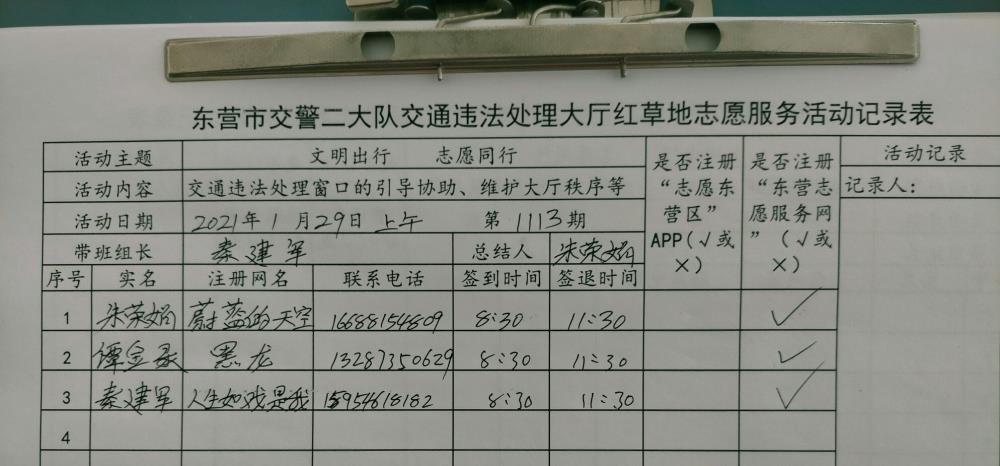 东营市交警二大队交通违法处理大厅红草地志愿服务活动记录表
活动主题 文明出行 志愿同行 是否注册“志愿东营区”APP(√或×) 是否注册“东营志愿服务网”(√或×) 活动记录
活动内容 交通违法处理窗口的引导协助、维护大厅秩序等 记录人:
活动日期 2021年1月29日上午 第1113期
带班组长 秦建军 总结人 朱荣娟
序号 实名 注册网名 联系电话 签到时间 签退时间
1 朱荣娟 蔚蓝的天空 16688154809 8:30 11:30 ✓
2 谭金 黑龙 13287350629 8:30 11:30 ✓
3 秦建军 人生如戏是我 15954618182 8:30 11:30 ✓
4